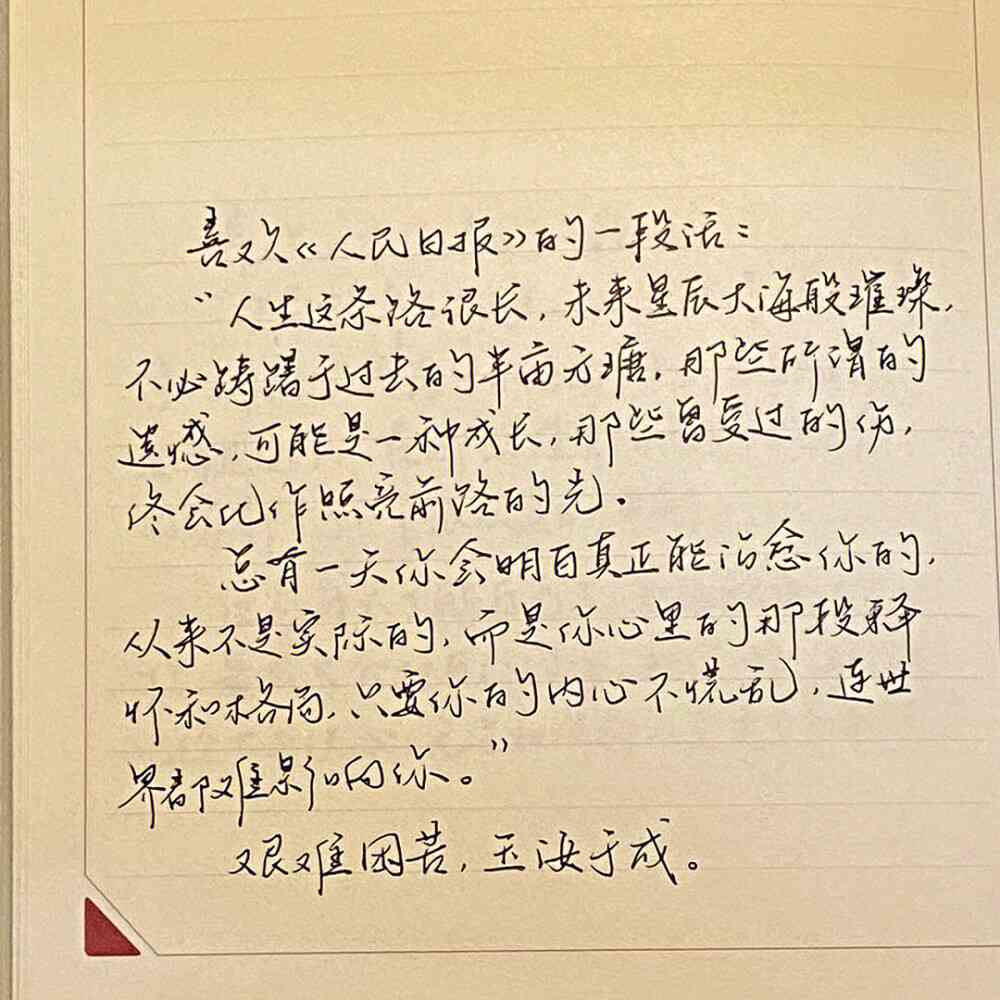 喜欢《人民日报》的一段话：
“人生这条路很长，未来星辰大海般璀璨，
不必踌躇于过去的半亩方塘，那些所谓的
遗憾，可能是一种成长，那些曾受过的伤，
终会化作照亮前路的光。
总有一天你会明白真正能治愈你的，
从来不是实际的，而是你心里的那段释
怀和格局，只要你的内心不慌乱，连世
界都难影响你。”
艰难困苦，玉汝于成。